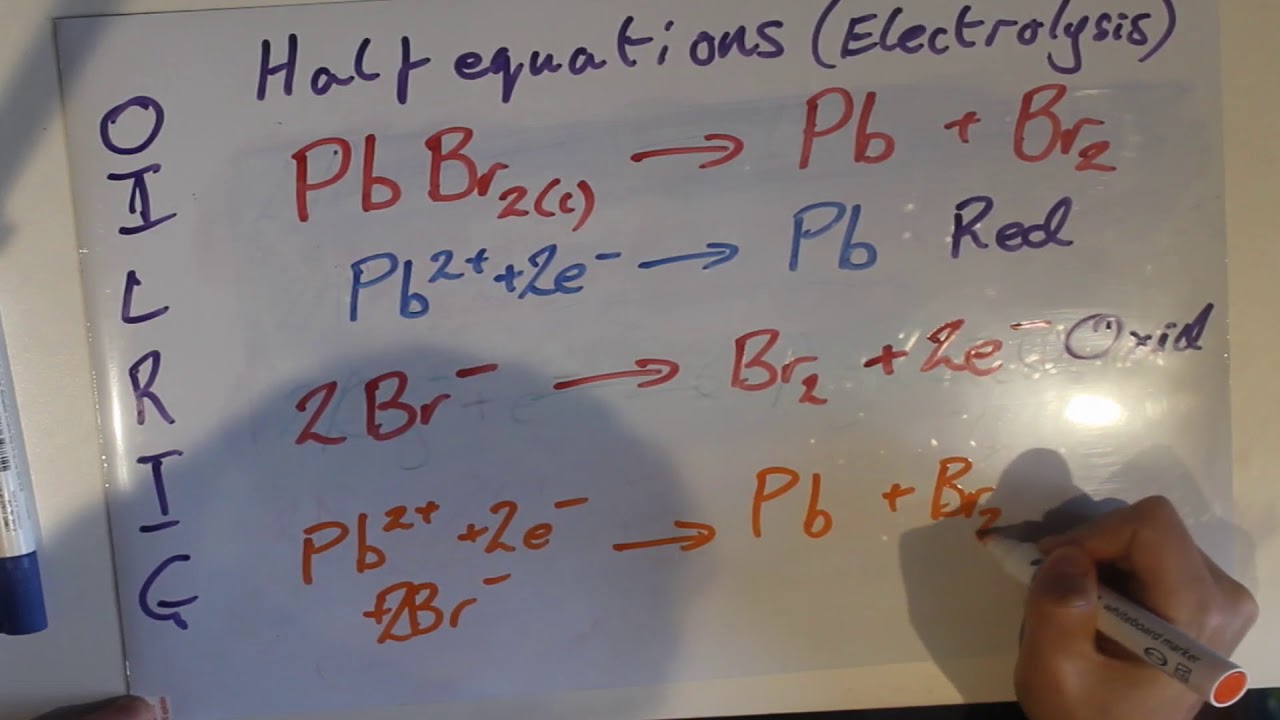 Half equations (Electrolysis)
O
I
L
R
I
G
PbBr₂(l) → Pb + Br₂
Pb²⁺ + 2e⁻ → Pb Red
2Br⁻ → Br₂ + 2e⁻ Oxid
Pb²⁺ + 2e⁻ → Pb + Br₂
+2Br⁻
whiteboard marker